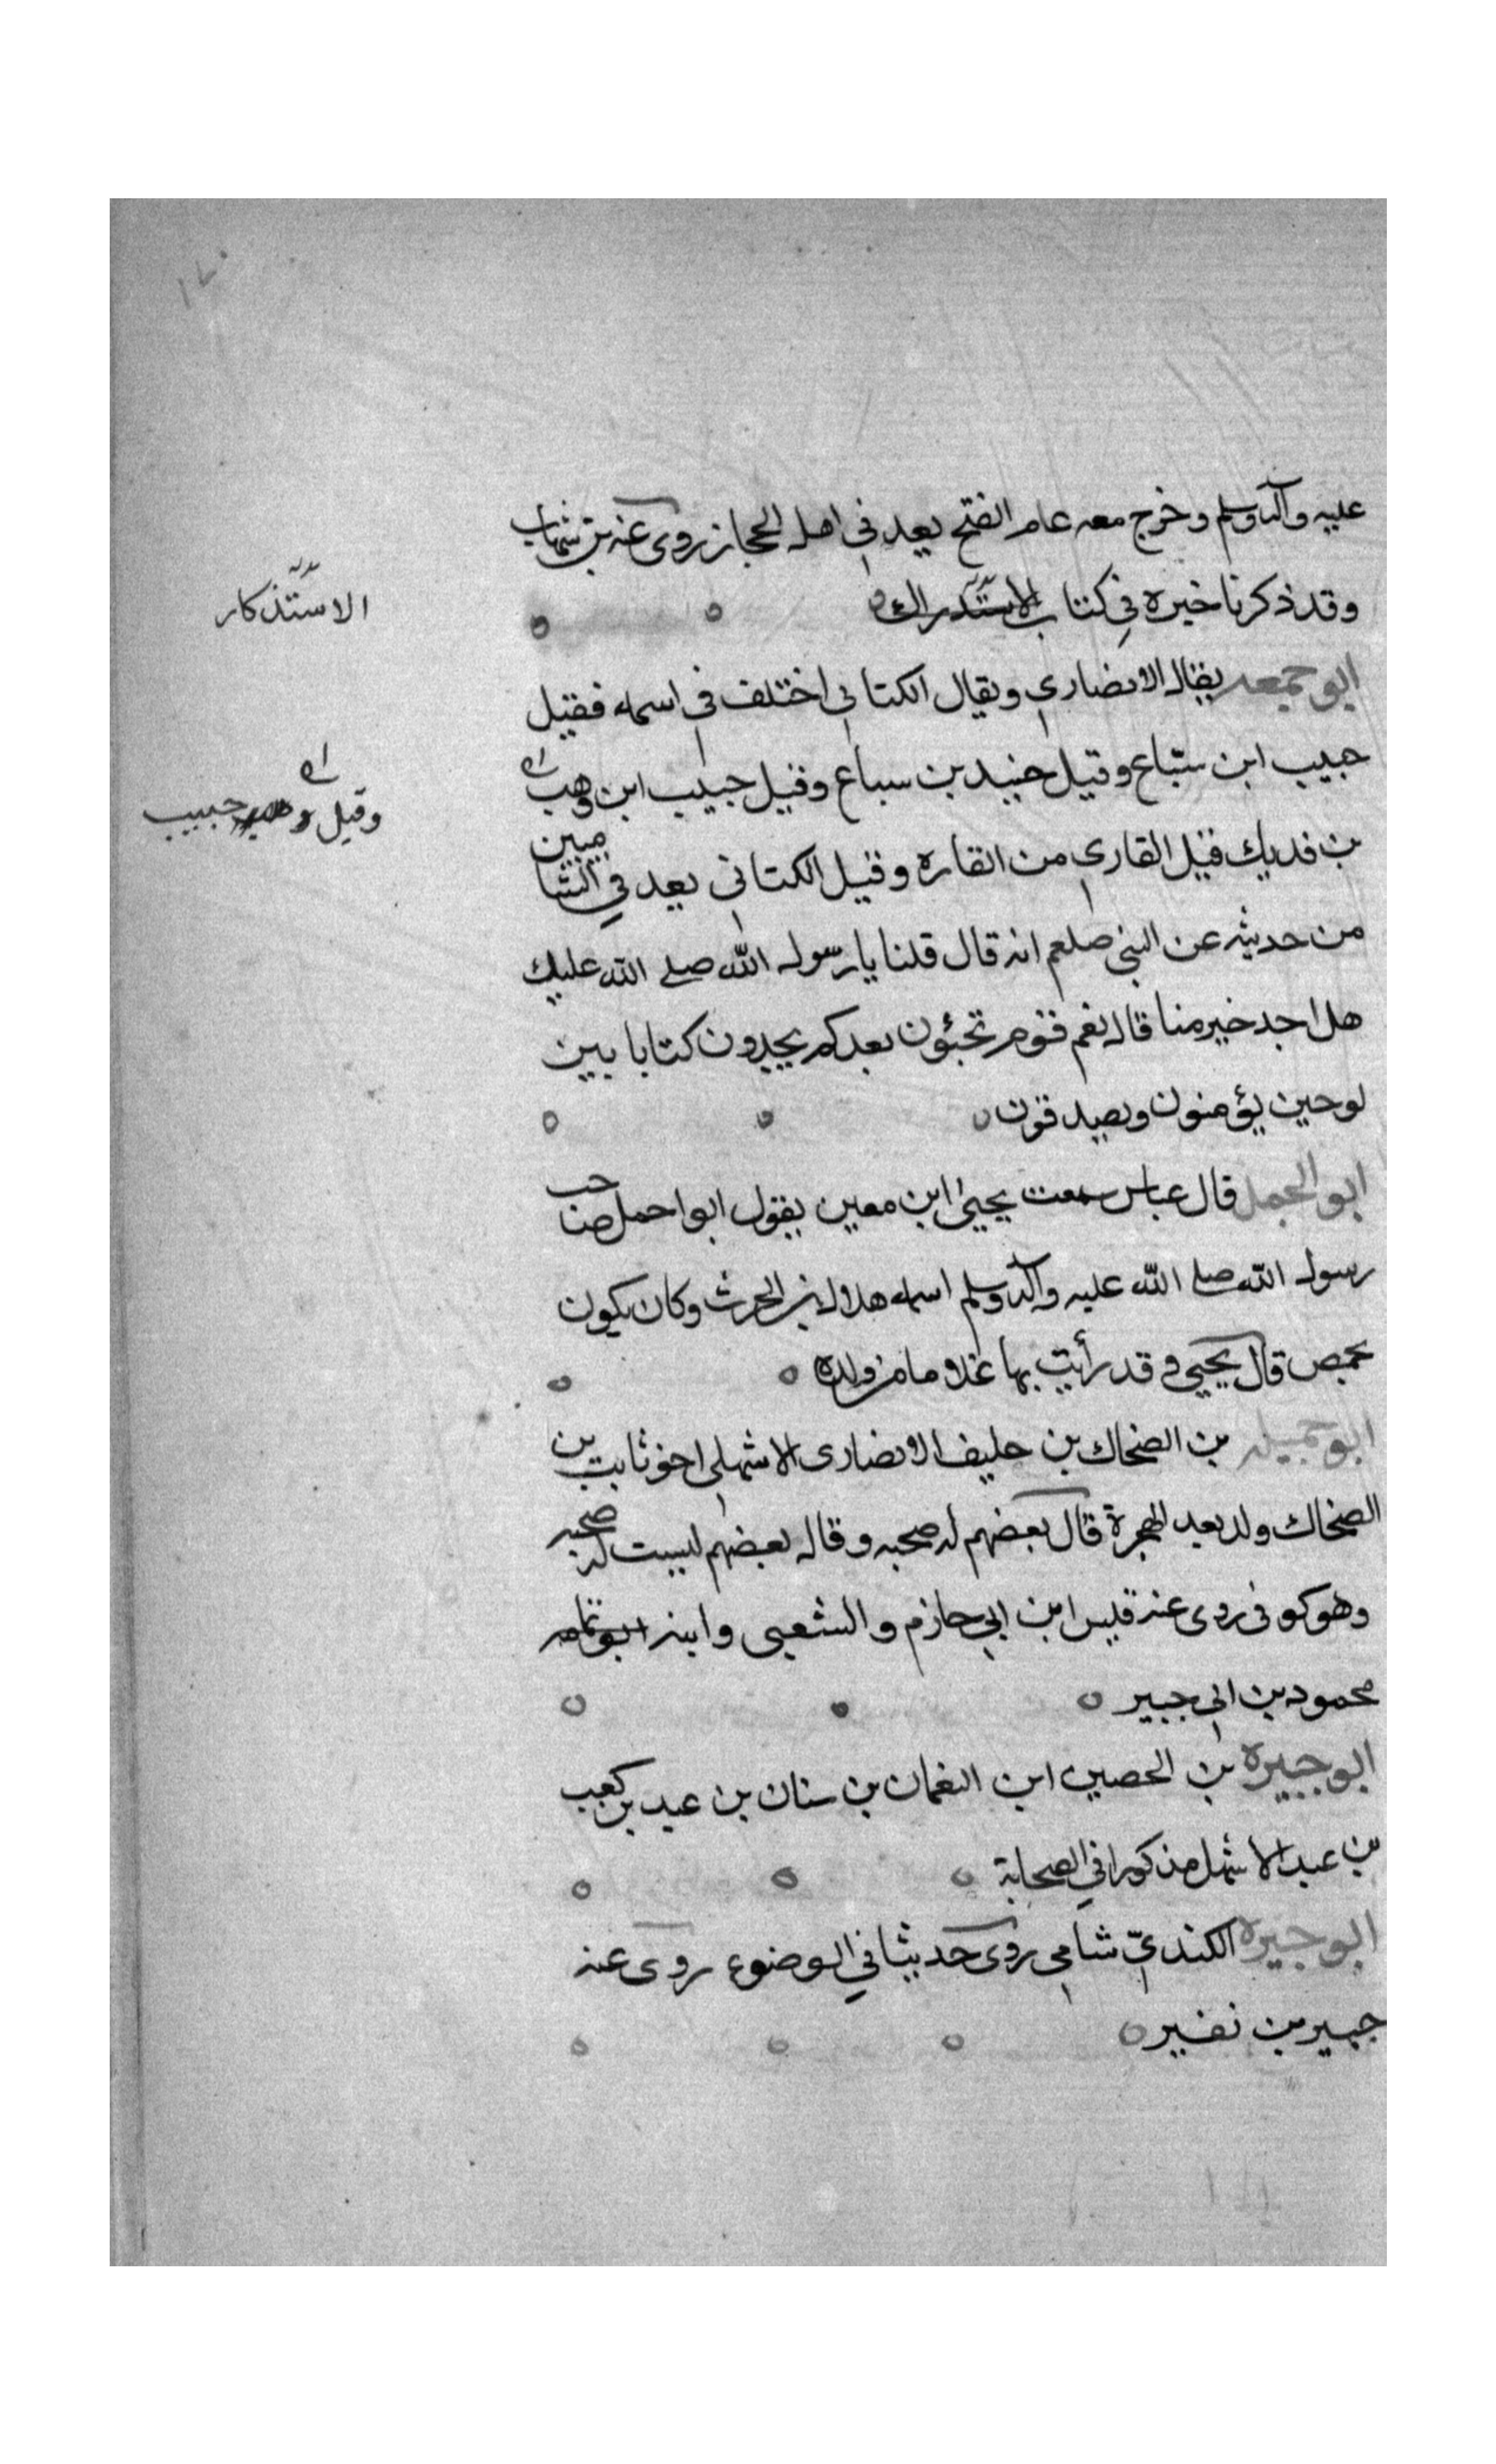 عليه وآله وسلم وخرج معه عام الفتح يعد في اهل الحجاز روى عنه بن شهاب
وقد ذكرنا خبره في كتاب الاستدراك
الاستذكار
ابو جمعه يقال الانصاري ويقال الكناني اختلف في اسمه فقيل
حبيب ابن سباع وقيل جنيد بن سباع وقيل حبيب ابن وهب
وقيل حبيب
بن فديك قيل القاري من القاره وقيل الكناني يعد في الشاميين
من حديثه عن النبي صلعم انه قال قلنا يا رسول الله صلى الله عليك
هل احد خير منا قال نعم قوم تجئون بعدكم يجدون كتابا بين
لوحين يؤمنون ويصدقون
ابو الجمل قال عباس سمعت يحيى ابن معين يقول ابو الجمل صاحب
رسول الله صلى الله عليه وآله وسلم اسمه هلال بن الحرث وكان يكون
بحمص قال يحيى وقد رأيت بها غلاما من ولده
ابو جبيله بن الضحاك بن خليف الانصارى الاشهلي اخو ثابت بن
الضحاك ولد بعد الهجرة قال بعضهم له صحبه وقال بعضهم ليست له صحبه
وهو كوفى روى عنه قيس ابن ابي حازم والشعبى وابنه
محمود بن ابي جبير
ابو جبيره بن الحصين ابن النعمان بن سنان بن عبد بن كعب
بن عبد الاشهل مذكورا في الصحابة
ابو جبيره الكنديّ شامي روى حديثا في الوضوء روى عنه
جبير بن نفير